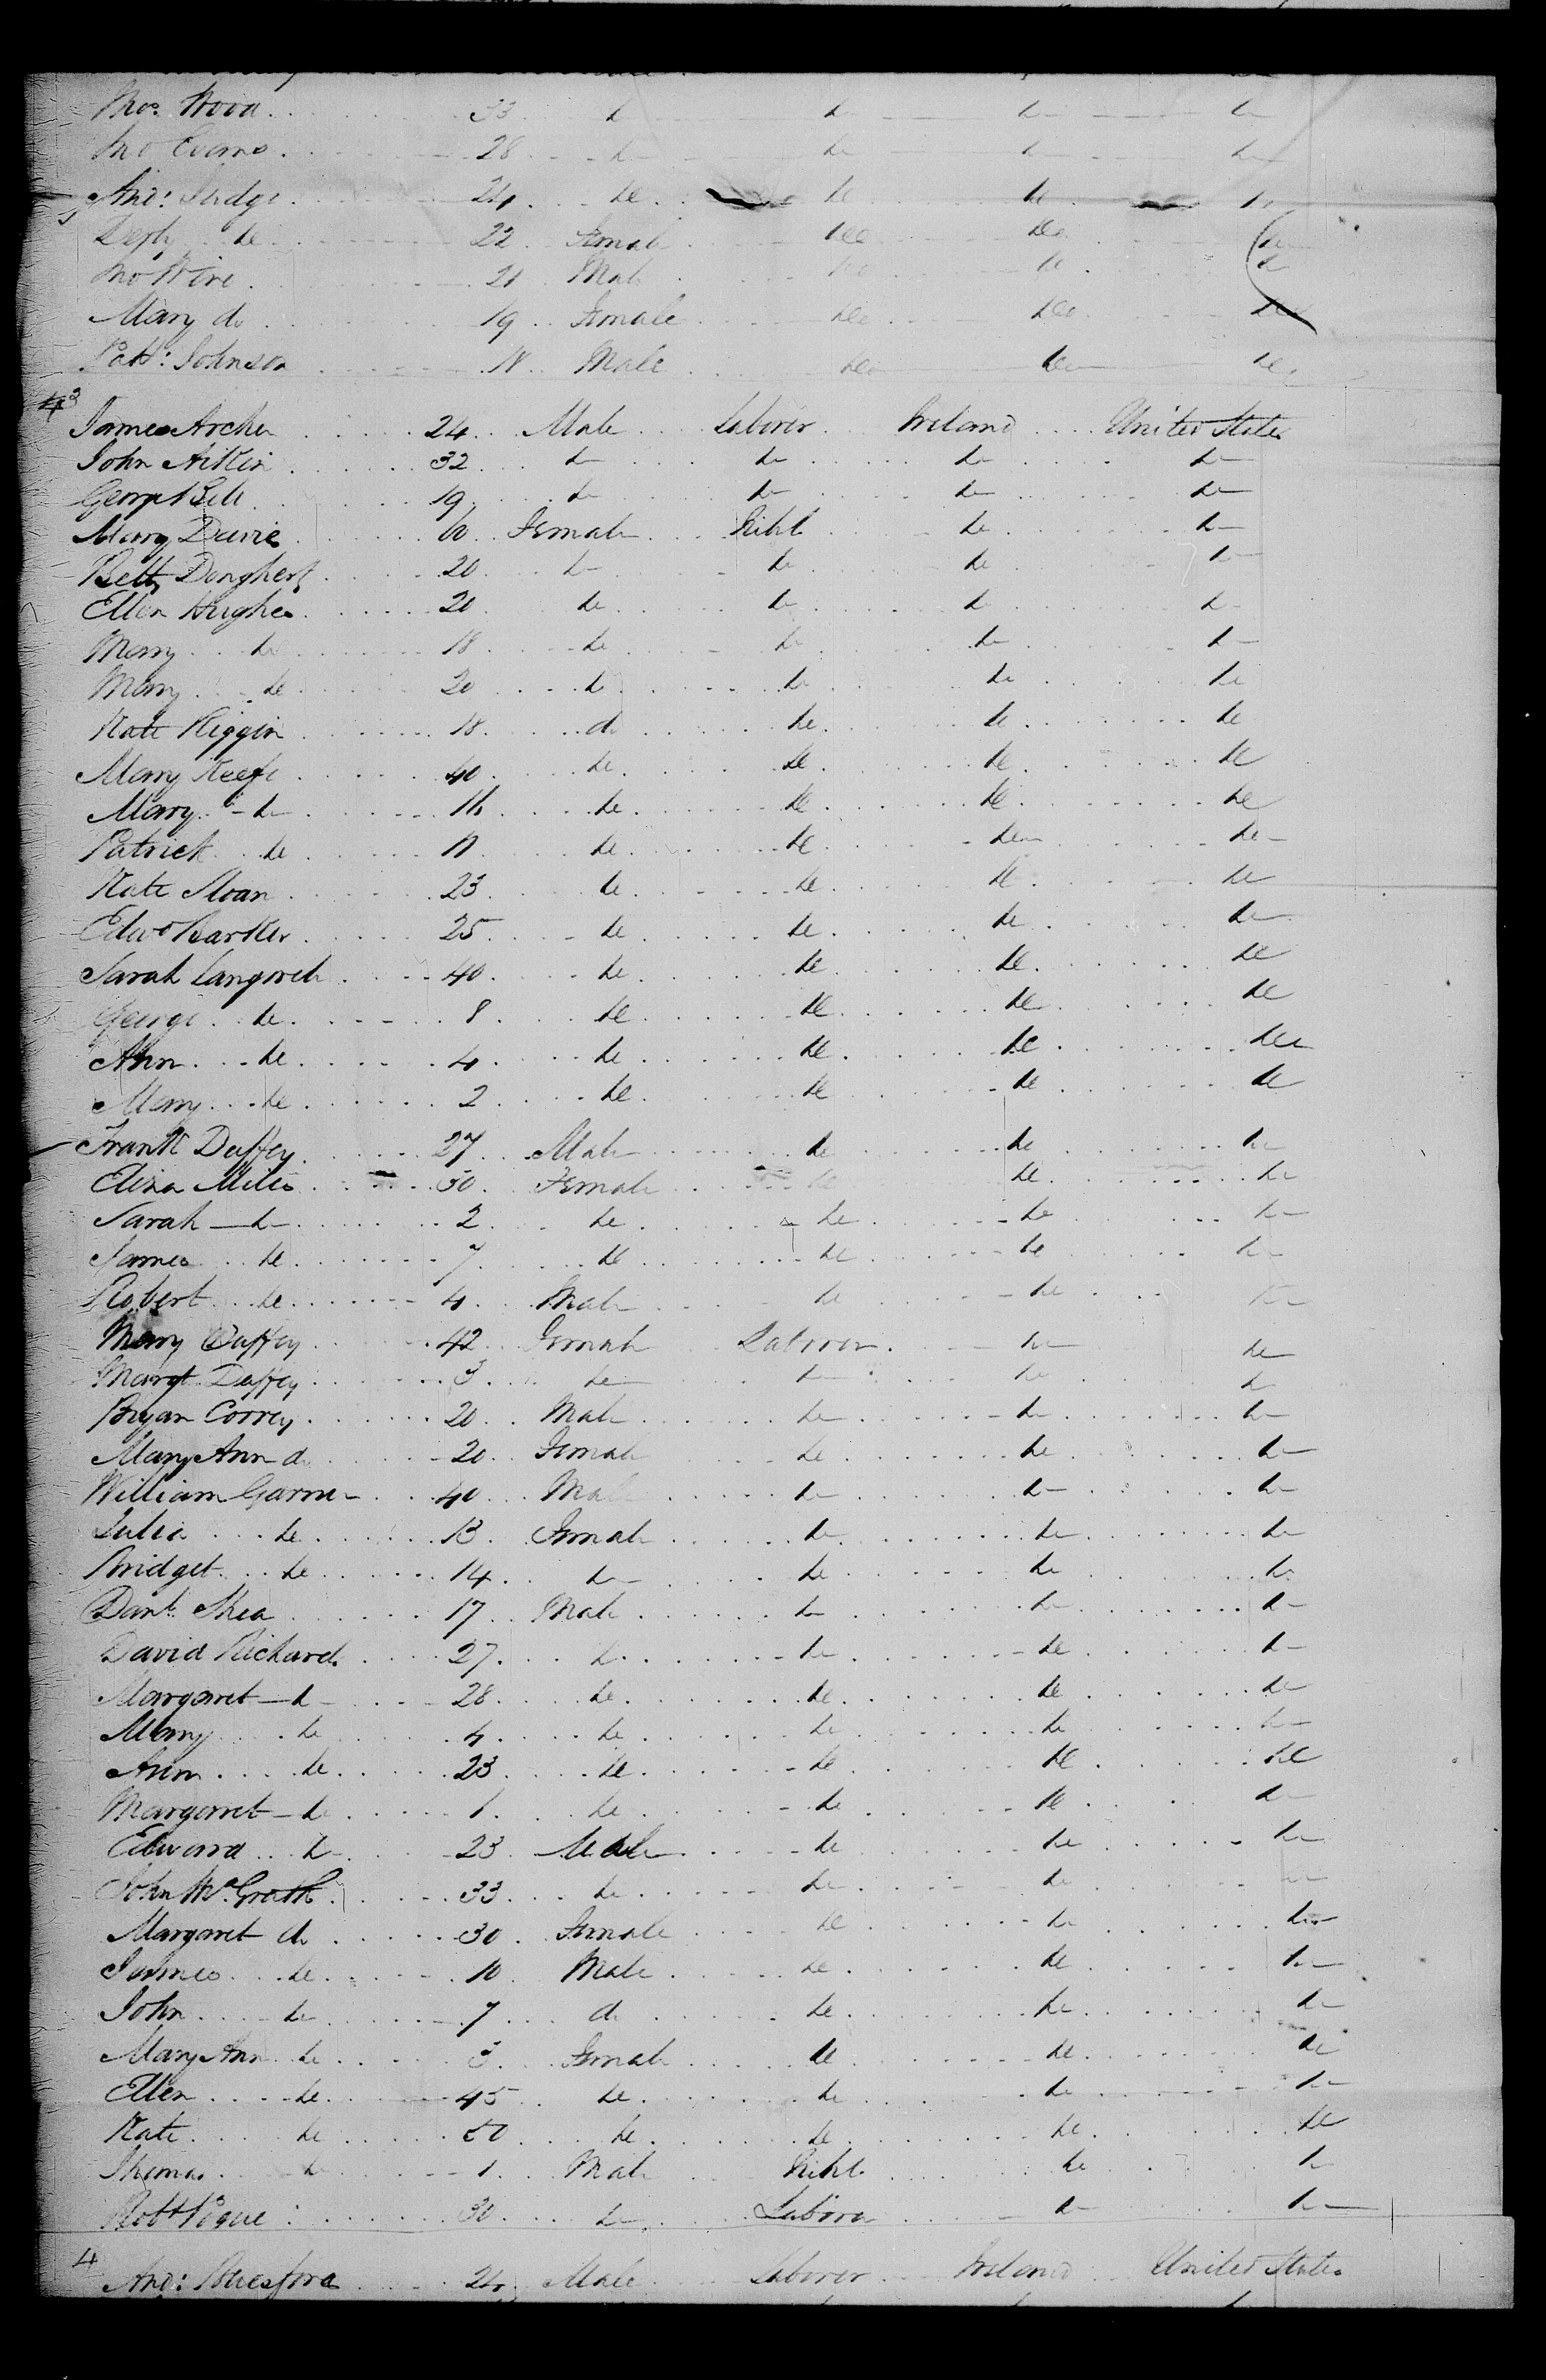 Thos. Wood 33 do do do do
Jno Evans 28 do do do do
And: Judge 24 do do do do
do 22 Female do do do
Jno Wire 21 Male do do do
Mary do 19 Female do do do
Patk: Johnson 18 Male do do do
3
James Archer 24 Male Laborer Ireland United States
John Aitkin 32 do do do do
George Bell 19 do do do do
Mary Davies Female do do
Betty Dougherty 20 do do do do
Ellen Hughes 20 do do do do
Mary do 18 do do do do
Mary do 20 do do do do
Kate Higgin 18 do do do do
Mary Keefe 40 do do do do
Mary do 16 do do do do
Patrick do 11 do do do do
Kate Sloan 23 do do do do
Edwd Barker 25 do do do do
Sarah 40 do do do do
George do 8 do do do do
Ann do 4 do do do do
Mary do 2 do do do do
Frank Duffey 27 Male do do do
Eliza Miles 30 Female do do do
Sarah do 2 do do do do
James do 7 do do do do
Robert do 4 Male do do do
Mary Duffey 42 Female Laborer do do
Margt Duffey 3 do do do do
Bryan Correy 20 Male do do do
Mary Ann do 20 Female do do do
William 40 Male do do do
Julia do 13 Female do do do
Bridget do 14 do do do do
Danl. Shea 17 Male do do do
David Richards 27 do do do do
Margaret do 28 do do do do
Mary do 4 do do do do
Ann do 23 do do do do
Margaret do 1 do do do do
Edward do 23 Male do do do
John McGrath 33 do do do do
Margaret do 30 Female do do do
James do 10 Male do do do
John do 7 do do do do
Mary Ann do 3 Female do do do
Ellen do 45 do do do do
Kate do 50 do do do do
Thomas do 1 Male do do
Robt Pogue 30 do Laborer do do
4
And: Beresford 24 Male Laborer Ireland United States